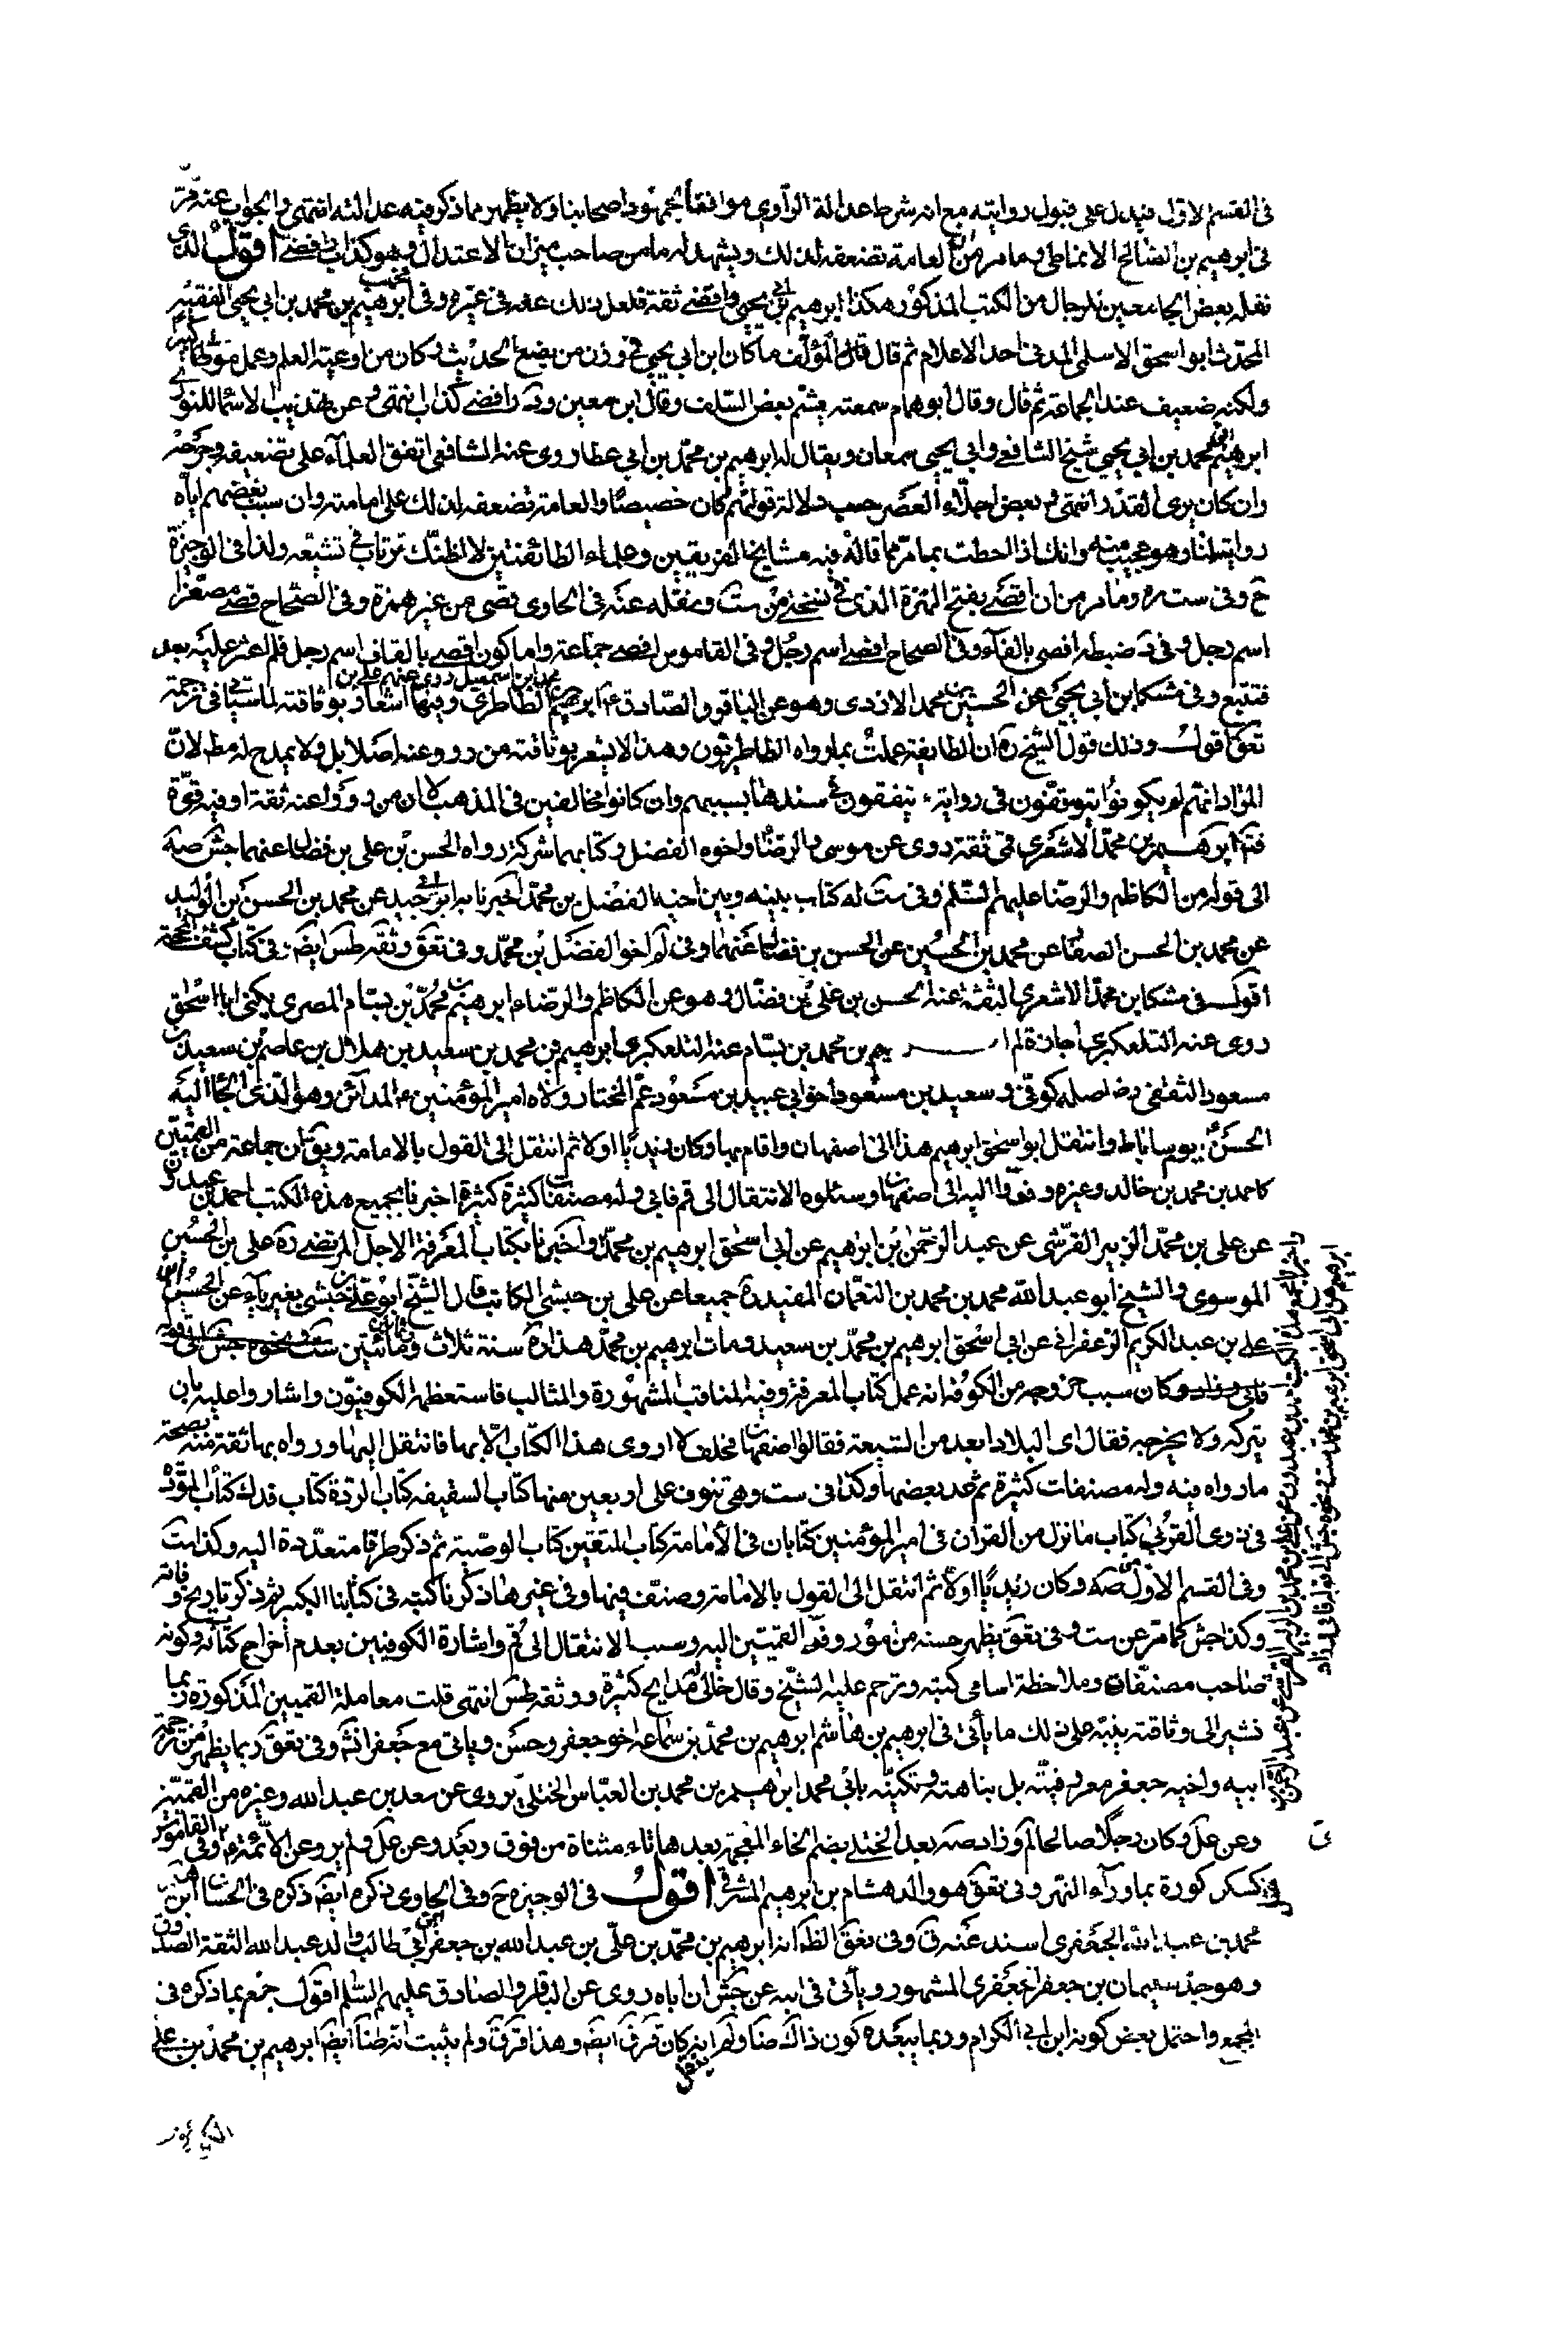 في القسم الاول فيدل على قبول روايته مع انه شرط عدالة الراوي موافقا لجمهور اصحابنا ولا يظهر مما ذكر فيه عدالته انتهى والجواب عنه مر
في ابرهيم بن صالح الانماطي وما مر من ان العامة تضعفه لذلك ويشهد له ما من صاحب ميزان الاعتدال وهو كذاب رافضي اقول الذي
نقله بعض الجامعين للرجال من الكتب المذكور هكذا ابرهيم بن ابي يحيى رافضي ثقة فلعل ذلك عنه في غيره وفي ابرهيم بن محمد بن ابي يحيى الفقيه
المحدث ابو اسحق الاسلمي المدني احد الاعلام ثم قال قال المؤلف ما كان ابن ابي يحيى في وزن من يضع الحديث وكان من اوعية العلم وعمل موطأ كبير
ولكنه ضعيف عند الجماعة ثم قال وقال ابو همام سمعته يشتم بعض السلف وقال ابن معين ود رافضي كذاب انتهى وعن تهذيب الاسماء للنووي
ابرهيم بن محمد بن ابي يحيى شيخ الشافعي وابي يحيى سمعان ويقال له ابرهيم بن محمد بن ابي عطا روى عنه الشافعي اتفق العلماء على تضعيفه وجرحه
وان كان يرى القدر انتهى و بعض اجلاء العصر حسب دلالة قولهم كان خصيصا والعامة تضعفه لذلك على امامته وان سبب بغضهم اياه
روايته لنا وهو عجيب منه وانك اذا احطت بما مر مما قاله فيه مشايخ الفريقين وعلماء الطائفتين لا اظنك ترتاب في تشيعه ولذا في الوجيزة
ح وفي ست مره وما مر من ان اقصى بفتح الهمزة الذي في نسختي من ست ونقله عنه في الحاوي قصى من غير همزة وفي الصحاح قصي مصغرا
اسم رجل وفي د ضبطه افصى بالفاء وفي الصحاح افصى اسم رجل وفي القاموس افصى جماعة واما كون اقصى بالقاف اسم رجل فلم اعثر عليه بعد
فتتبع وفي مشكا ابن ابي يحيى عنه الحسين بن محمد الازدي وهو عن الباقر والصادق ع ابرهيم بن محمد ابن اسمعيل روى عنه علي بن الطاطري وفيها اشعار بوثاقته لما سيأتي في ترجمة
تعق اقول وذلك قول الشيخ ره ان الطايفة عملت بما رواه الطاطريون وهذا لا يشعر بوثاقته من رووعنه اصلا بل ولا بمدح له مط لان
المراد انهم لم يكونوا يتوقفون في رواية يتفقون في سندها بسببهم وان كانوا مخالفين في المذهب لا ان من رووا عنه ثقة او فيه قوة
فتد ابرهيم بن محمد الاشعري قمي ثقة روى عن موسى والرضا واخوه الفضل وكتابهما شركة رواه الحسن بن علي بن فضال عنهما جش صه
الى قوله من الكاظم والرضا عليهم السلم وفي ست له كتاب بينه وبين اخيه الفضل بن محمد اخبرنا به ابن ابي جيد عن محمد بن الحسن بن الوليد
عن محمد بن الحسن الصفار عن محمد بن الحسين عن الحسن بن فضال عنهما وفي لم اخو الفضل بن محمد وفي تعق وثقه طس ايضا في كتاب كشف المحجة
اقول في مشكا ابن محمد الاشعري الثقة عنه الحسن بن علي بن فضال وهو عن الكاظم والرضا ع ابرهيم بن محمد بن بسام المصري يكنى ابا اسحق
روى عنه التلعكبري اجازة لم ابرهيم بن محمد بن بسام عنه التلعكبري ابرهيم بن محمد بن سعيد بن هلال بن عاصم بن سعيد بن
مسعود الثقفي رض اصله كوفي وسعيد بن مسعود اخو ابي عبيد بن مسعود عم المختار ولاه امير المؤمنين ع المدائن وهو الذي لجا اليه
الحسن ع يوم ساباط وانتقل ابو اسحق ابرهيم هذا الى اصفهان واقام بها وكان زيديا اولا ثم انتقل الى القول بالامامة ويق ان جماعة من القميين
كاحمد بن محمد بن خالد وغيره وفدوا اليه الى اصفهان وسئلوه الانتقال الى قم فابى وله مصنفات كثيرة كثيرة اخبرنا بجميع هذه الكتب احمد بن عبدون
عن علي بن محمد الزبير القرشي عن عبد الرحمن بن ابرهيم عن ابي اسحق ابرهيم بن محمد واخبرنا بكتاب المعرفة الاجل المرتضى ره علي بن الحسين
الموسوي والشيخ ابو عبد الله محمد بن محمد بن النعمان المفيد ره جميعا عن علي بن حبشي الكاتب قال الشيخ ابو علي بن حبشي بغير ياء عن الحسين بن
علي بن عبد الكريم الزعفراني عن ابي اسحق ابرهيم بن محمد بن سعيد ومات ابرهيم بن محمد هذا ره سنة ثلاث وثمانين ومأتين ست ونحوه جش الى قوله
فابى وزاد وكان سبب خروجه من الكوفة انه عمل كتاب المعرفة وفيه المناقب المشهورة والمثالب فاستعظمه الكوفيون واشاروا عليه بان
يتركه ولا يخرجه فقال اى البلاد ابعد من الشيعة فقالوا اصفهان فحلف لا اروى هذا الكتاب الا بها فانتقل اليها ورواه بها ثقة منه بصحة
ما رواه فيه وله مصنفات كثيرة ثم عد بعضها وكذا في ست وهي تنوف على اربعين منها كتاب السقيفه كتاب الردة كتاب فدك كتاب المودة
في ذوى القربى كتاب ما نزل من القران في امير المؤمنين كتابان في الامامة كتاب المتعتين كتاب الوصية ثم ذكر طرقا متعددة اليه وكذا ست
وفي القسم الاول من صه وكان زيديا اولا ثم انتقل الى القول بالامامة وصنف فيها وفي غيرها ذكرنا كتبه في كتابنا الكبير ثم ذكر تاريخ وفاته
وكذا جش كما مر عن ست وفي تعق يظهر حسنه من مور وفد القميين اليه وسبب الانتقال الى قم واشارة الكوفيين بعدم اخراج كتابه وكونه
صاحب مصنفات وملاحظة اسامى كتبه وترحم عليه الشيخ وقال خالى له مدايح كثيرة ووثقه طس انتهى قلت معاملة القميين المذكورة ربما
تشير الى وثاقته ينبه على ذلك ما يأتي في ابرهيم بن هاشم ابرهيم بن محمد بن سماعه اخو جعفر وحسن ويأتي مع جعفر انشه وفي تعق ربما يظهر من ترجمة
ابيه واخيه جعفر معروفيته بل نباهته وتكنيه بابي محمد ابرهيم بن محمد بن العباس الختلي يروى عن سعد بن عبد الله وغيره من القميين
وعن علي وكان رجلا صالحا لم وزاد صه بعد الختلي بضم الخاء المعجمه بعدها تاء مثناة من فوق وبعد وعن علي ولم يرو عن الائمة ع وفي القاموس
كسكر كورة بما وراء النهر وفي تعق هو والد هشام بن ابرهيم المشرقي اقول في الوجيزه ح وفي الحاوي ذكره ايضا ذكره في الحسان ابرهيم بن
محمد بن عبد الله الجعفري اسند عنه ق وفي تعق الظ انه ابرهيم بن محمد بن علي بن عبد الله بن جعفر بن ابي طالب والد عبد الله الثقة الصدوق
وهو جد سليمان بن جعفر الجعفري المشهور ويأتي في ابيه عن جش ان اباه روى عن الباقر والصادق عليهم السلم اقول جزم بما ذكره في
المجمع واحتمل بعض كونه ابن ابي الكرام وربما يبعده كون ذاك ضا ولم انه كان ق ايضا وهذا ق ولم يثبت انه ضا ايضا ابرهيم بن محمد بن علي